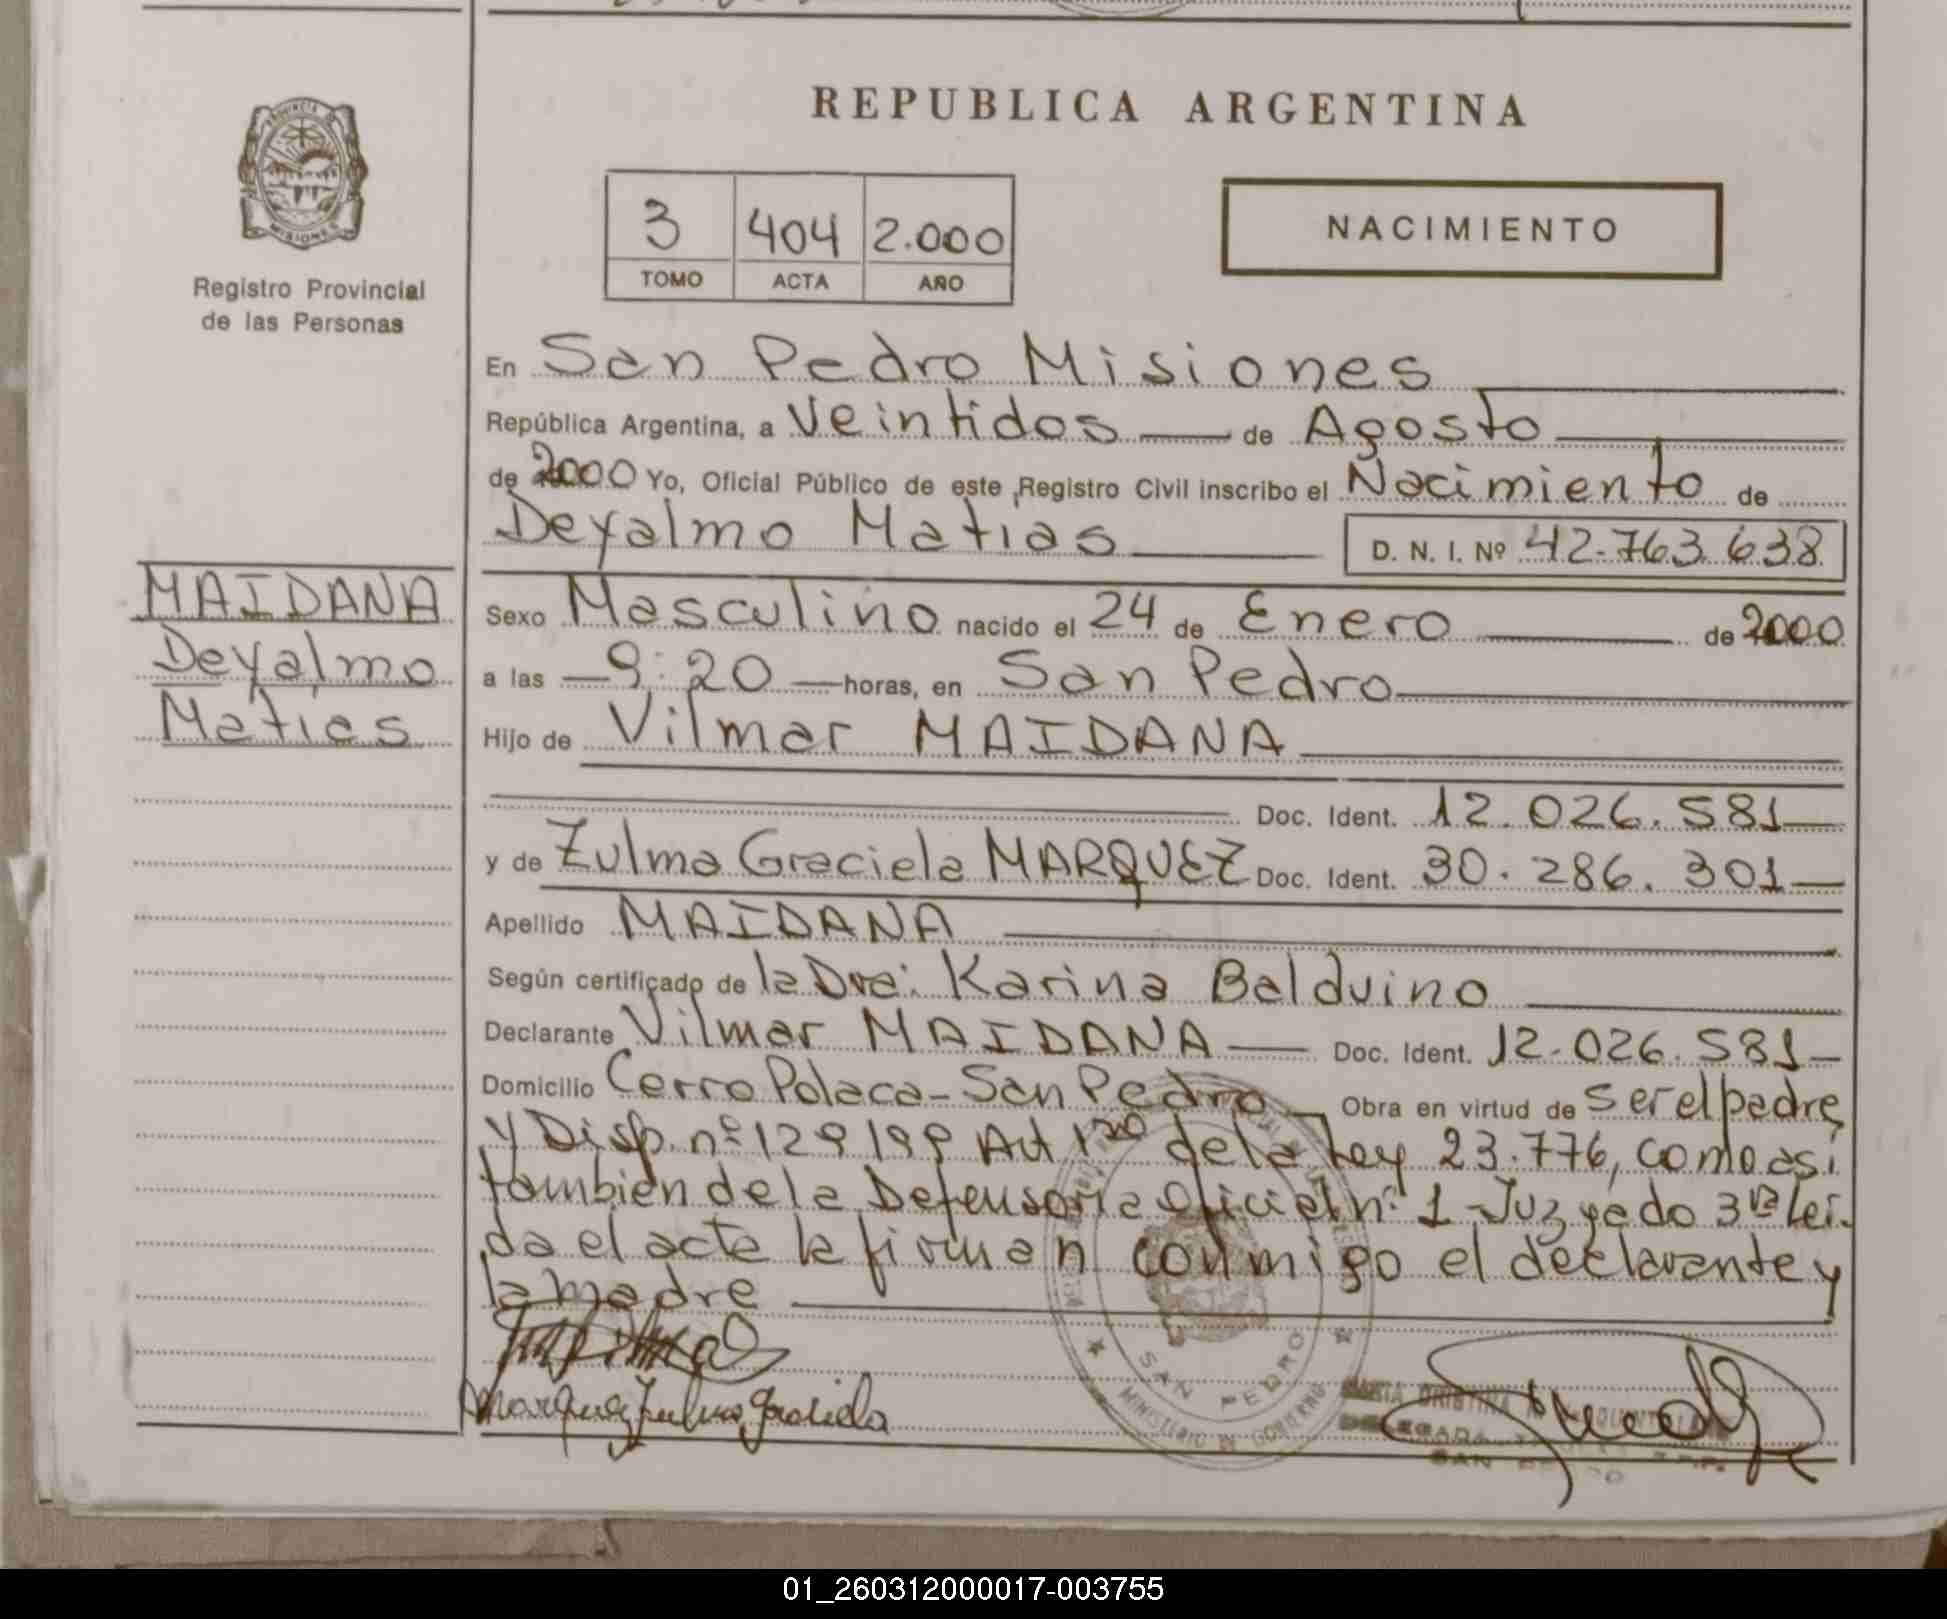 REPUBLICA ARGENTINA
PROVINCIA DE
MISIONES
Registro Provincial
de las Personas
3 404 2.000
TOMO ACTA AÑO
NACIMIENTO
En San Pedro Misiones
República Argentina, a Veintidos de Agosto
de 2000 Yo, Oficial Público de este Registro Civil inscribo el Nacimiento de
Deyalmo Matias D. N. I. Nº 42.763.638
MAIDANA
Deyalmo
Matias
Sexo Masculino nacido el 24 de Enero de 2000
a las 9:20 horas, en San Pedro
Hijo de Vilmar MAIDANA
Doc. Ident. 12.026.581
y de Zulma Graciela MARQUEZ Doc. Ident. 30.286.301
Apellido MAIDANA
Según certificado de la Dra. Karina Balduino
Declarante Vilmar MAIDANA Doc. Ident. 12.026.581
Domicilio Cerro Polaca - San Pedro Obra en virtud de ser el padre
y Disp. nº 129/99 Art 1ro de la Ley 23.776, como asi
tambien de la Defensoria Oficial nº 1 Juzgado 3ra Lei
da el acta la firman conmigo el declarante y
la madre
Marquez Zulma Graciela
SAN PEDRO
MINISTERIO DE GOBIERNO
MARIA CRISTINA
DELEGADA
SAN PEDRO
01_260312000017-003755